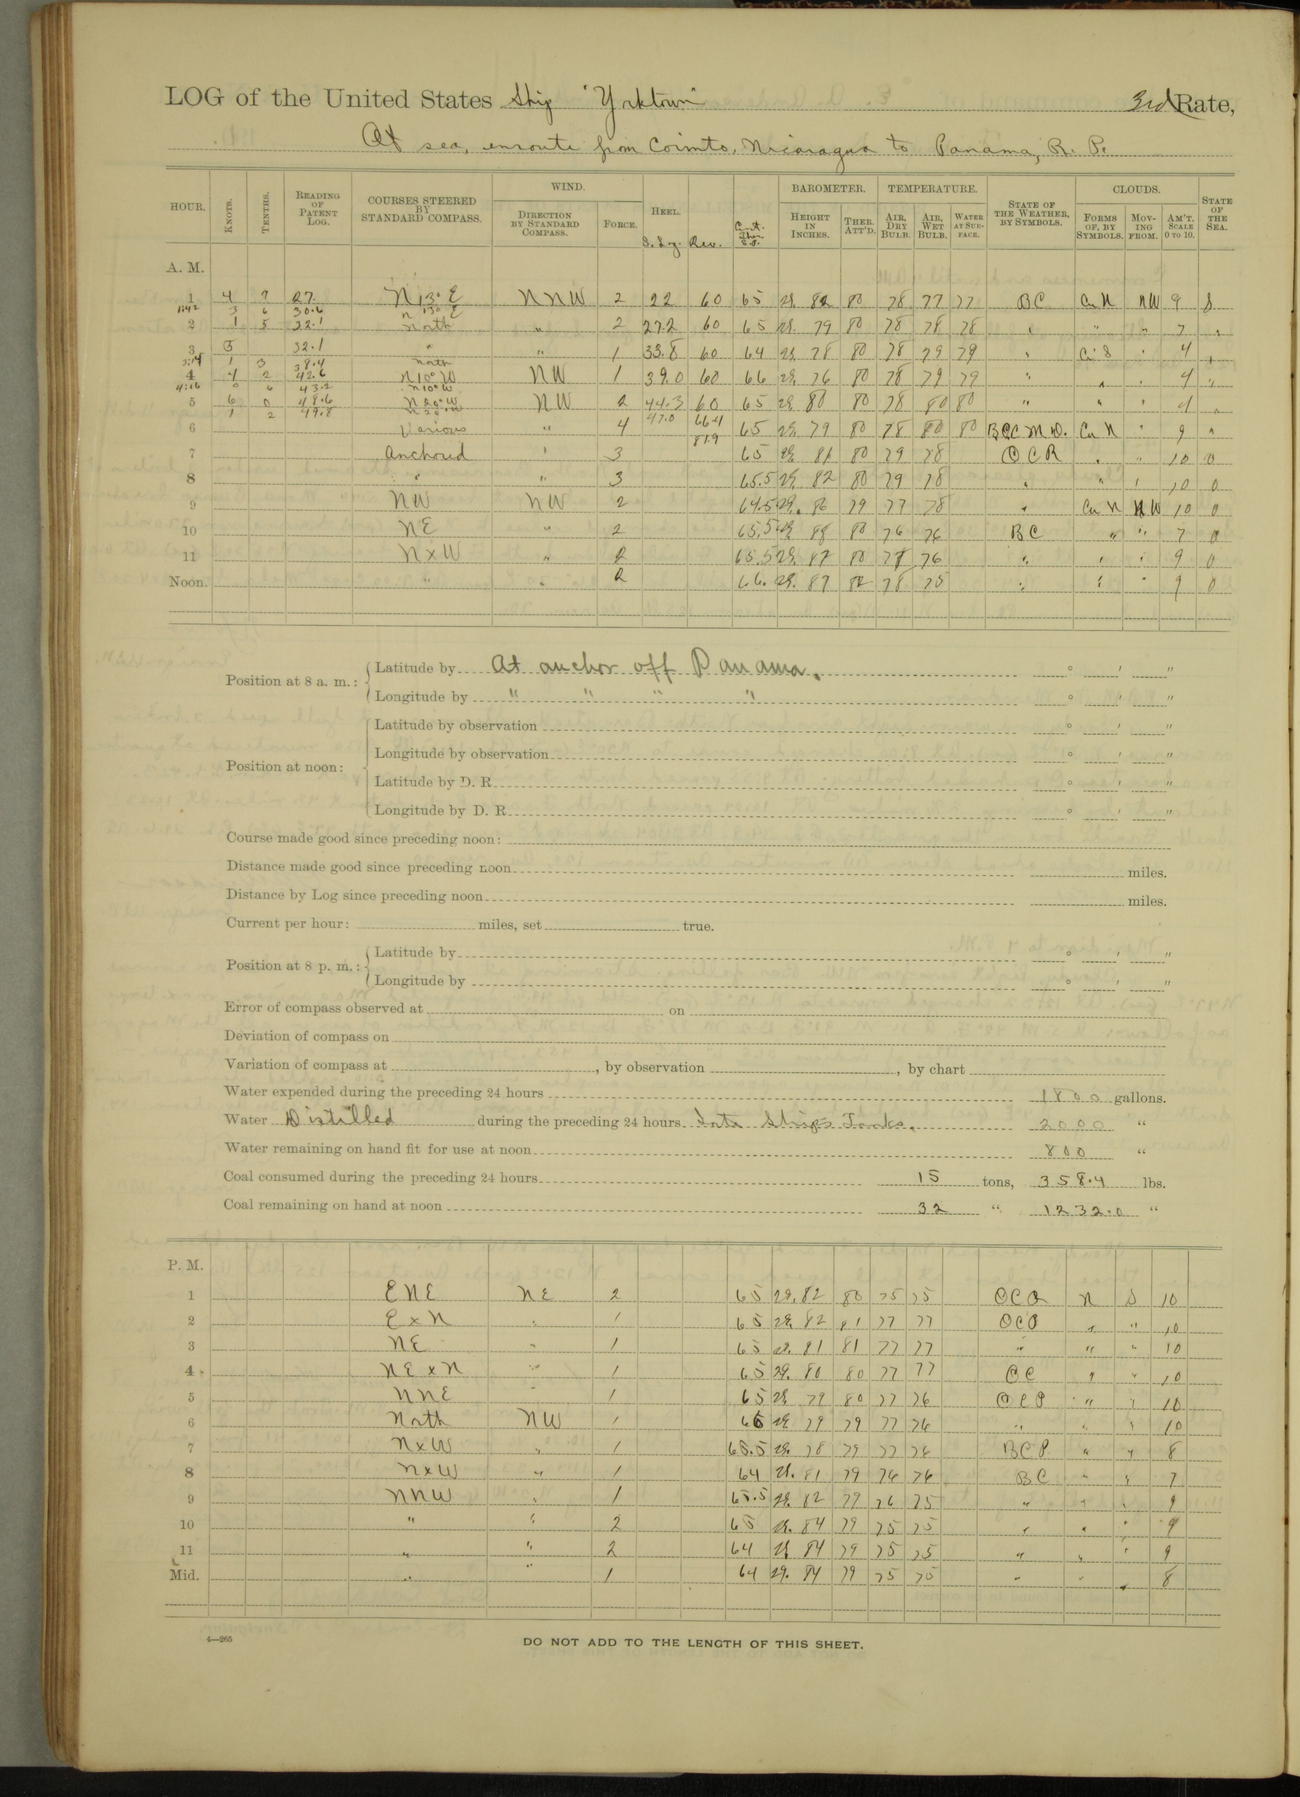 LOG of the United States Ship "Yorktown" 3rd Rate,
At sea, enroute from Corinto, Nicaragua to Panama, R. P.
HOUR. KNOTS. TENTHS. READING OF PATENT LOG. COURSES STEERED BY STANDARD COMPASS. WIND. DIRECTION BY STANDARD COMPASS. FORCE. HEEL. Rev. BAROMETER. HEIGHT IN INCHES. THER. ATT'D. TEMPERATURE. AIR, DRY BULB. AIR, WET BULB. WATER AT SURFACE. STATE OF THE WEATHER, BY SYMBOLS. CLOUDS. FORMS OF, BY SYMBOLS. MOVING FROM. AM'T. SCALE 0 TO 10. STATE OF THE SEA.
A. M.
1 4 7 27. N 13° E NNW 2 22 60 65 29. 82 80 78 77 77 BC Cu N NW 9 S
1:42 3 6 30.6 N 13° E
2 1 5 32.1 North " 2 27.2 60 65 29. 79 80 78 78 78 " " " 7 "
3 32.1 " " 1 33.8 60 64 29. 78 80 78 79 79 " Ci S " 4 "
3:14 1 3 38.4 North
4 4 2 42.6 N 10° W NW 1 39.0 60 66 29. 76 80 78 79 79 " " " 4 "
4:16 0 6 43.2 N 10° W
5 6 0 48.6 N 20° W NW 2 44.3 60 65 29. 80 80 78 80 80 " " " 4 "
1 2 49.8 N 20° W 47.0
6 Various " 4 65 29. 79 80 78 80 80 Cu N " 9 "
7 Anchored " 3 65 29. 81 80 79 78 OCR " " 10 0
8 " " 3 65.5 29. 82 80 79 78 " " " 10 0
9 NW NW 2 64.5 29. 86 79 77 78 " Cu N NW 10 0
10 NE " 2 65.5 29. 88 80 76 76 BC " " 7 0
11 N x W " 2 65.5 29. 87 80 77 76 " " " 9 0
Noon. " " 2 66. 29. 87 82 78 75 " " " 9 0
Position at 8 a. m.: Latitude by At anchor off Panama. ° ' "
Longitude by " " " " ° ' "
Position at noon: Latitude by observation ° ' "
Longitude by observation ° ' "
Latitude by D. R. ° ' "
Longitude by D. R. ° ' "
Course made good since preceding noon:
Distance made good since preceding noon miles.
Distance by Log since preceding noon miles.
Current per hour: miles, set true.
Position at 8 p. m.: Latitude by ° ' "
Longitude by ° ' "
Error of compass observed at on
Deviation of compass on
Variation of compass at , by observation , by chart
Water expended during the preceding 24 hours 1800 gallons.
Water Distilled during the preceding 24 hours Into Ships Tanks. 2000 "
Water remaining on hand fit for use at noon 800 "
Coal consumed during the preceding 24 hours 15 tons, 358.4 lbs.
Coal remaining on hand at noon 32 " 1232.0 "
P. M.
1 ENE NE 2 65 29.82 80 75 75 N S 10
2 E x N " 1 65 29. 82 81 77 77 OCO " " 10
3 NE " 1 65 29. 81 81 77 77 " " " 10
4 NE x N " 1 65 29. 80 80 77 77 OC " " 10
5 NNE " 1 65 29. 79 80 77 76 OCP " " 10
6 North NW 1 29. 79 79 77 76 " " " 10
7 N x W " 1 65.5 29. 78 79 77 76 BCP " " 8
8 N x W " 1 64 29. 81 79 76 76 BC " " 7
9 NNW " 1 65.5 29. 82 79 76 75 " " " 9
10 " " 2 65 29. 84 79 75 75 " " " 9
11 " " 2 64 29. 84 79 75 75 " " " 9
Mid. " " 1 64 29. 84 79 75 75 " " " 8
4—265
DO NOT ADD TO THE LENGTH OF THIS SHEET.